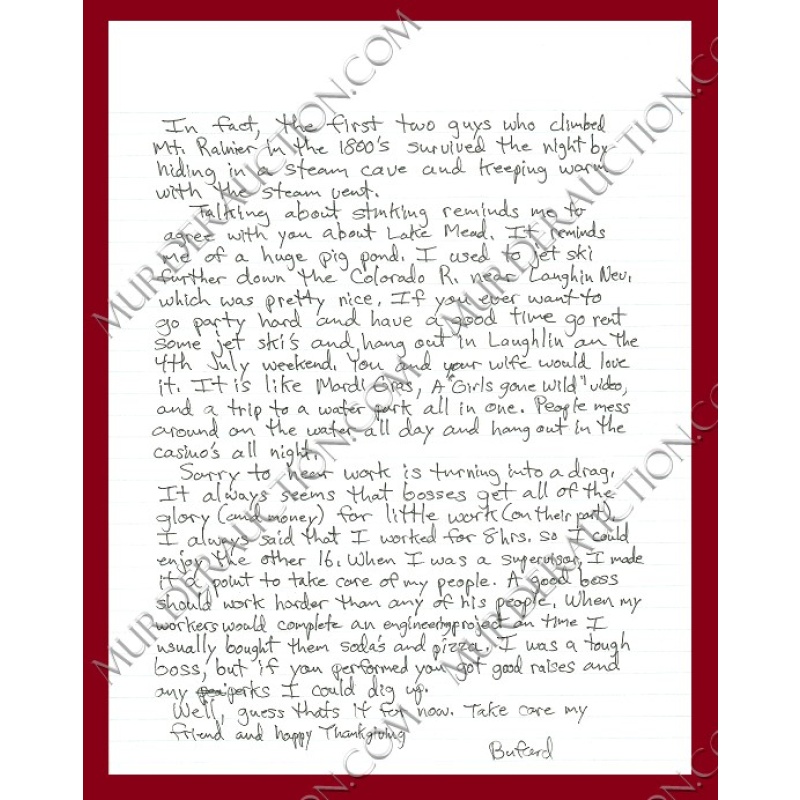 In fact, the first two guys who climbed
Mt. Rainier in the 1800's survived the night by
hiding in a steam cave and keeping warm
with the steam vent.
Talking about stinking reminds me to
agree with you about Lake Mead. It reminds
me of a huge pig pond. I used to jet ski
further down the Colorado R. near Laughlin Nev.
which was pretty nice. If you ever want to
go party hard and have a good time go rent
some jet ski's and hang out in Laughlin on the
4th July weekend. You and your wife would love
it. It is like Mardi Gras, A "Girls gone wild" video,
and a trip to a water park all in one. People mess
around on the water all day and hang out in the
casino's all night.
Sorry to hear work is turning into a drag.
It always seems that bosses get all of the
glory (and money) for little work (on their part).
I always said that I worked for 8 hrs. so I could
enjoy the other 16. When I was a supervisor, I made
it a point to take care of my people. A good boss
should work harder than any of his people. When my
workers would complete an engineering project on time I
usually bought them soda's and pizza. I was a tough
boss, but if you performed you got good raises and
any perks I could dig up.
Well, guess thats it for now. Take care my
friend and happy Thanksgiving
Buford
MURDERAUCTION.COM
MURDERAUCTION.COM
MURDERAUCTION.COM
MURDERAUCTION.COM